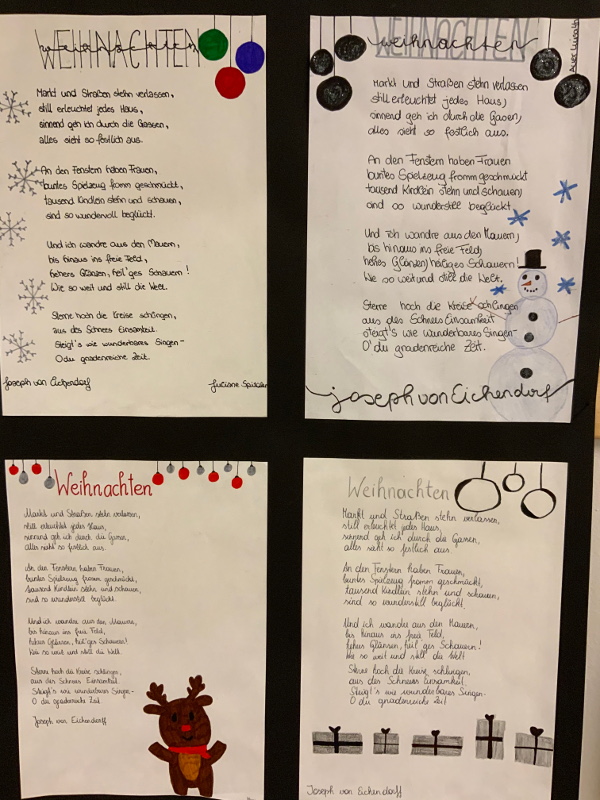 WEIHNACHTEN
weihnachten
Markt und Straßen stehn verlassen,
still erleuchtet jedes Haus,
sinnend geh ich durch die Gassen,
alles sieht so festlich aus.
An den Fenstern haben Frauen,
buntes Spielzeug fromm geschmückt,
tausend Kindlein stehn und schauen,
sind so wundervoll beglückt.
Und ich wandre aus den Mauern,
bis hinaus ins freie Feld,
hehres Glänzen, heil'ges Schauern!
Wie so weit und still die Welt.
Sterne hoch die Kreise schlingen,
aus des Schnees Einsamkeit
Steigt's wie wunderbares Singen-
O du gnadenreiche Zeit.
Joseph von Eichendorf
Luciane
WEIHNACHTEN
weihnachten
Markt und Straßen stehn verlassen
still erleuchtet jedes Haus,
sinnend geh ich durch die Gasen,
alles sieht so festlich aus.
An den Fenstern haben Frauen
buntes Spielzeug fromm geschmückt
tausend Kindlein stehn und schauen,
sind so wunderstill beglückt.
Und ich wandre aus den Mauern,
bis hinaus ins freie Feld,
hehes Glänzen, heiliges Schauern!
Wie so weit und still die Welt.
Sterne hoch die Kreise schlingen
aus des Schnees Einsamkeit
steigt's wie wunderbares Singen-
O' du gnadenreiche Zeit.
Joseph von Eichendorf
Weihnachten
Markt und Straßen stehn verlassen,
still erleuchtet jedes Haus,
sinnend geh ich durch die Gassen,
alles sieht so festlich aus.
An den Fenstern haben Frauen,
buntes Spielzeug fromm geschmückt,
tausend Kindlein stehn und schauen,
sind so wunderstill beglückt.
Und ich wandre aus den Mauern,
bis hinaus ins freie Feld,
hehres Glänzen, heil'ges Schauern!
Wie so weit und still die Welt.
Sterne hoch die Kreise schlingen,
aus des Schnees Einsamkeit
Steigt's wie wunderbares Singe-
O du gnadenreiche Zeit
Joseph von Eichendorff
Weihnachten
Markt und Straßen stehn verlassen,
still erleuchtet jedes Haus,
sinnend geh ich durch die Gassen,
alles saht so festlich aus.
An den Fenstern haben Frauen,
buntes Spielzeug fromm geschmückt,
tausend Kindlein stehn und schauen,
sind so wunderstill beglückt.
Und ich wandre aus den Mauern,
bis hinaus ins freie Feld,
hehres Glänzen, heil'ges Schauern!
Wie so weit und still die Welt
Sterne hoch die Kreise schlingen,
aus des Schnees Einsamkeit
Steigt's wie wunderbares Singen-
O du gnadenreiche Zeit!
Joseph von Eichendorff